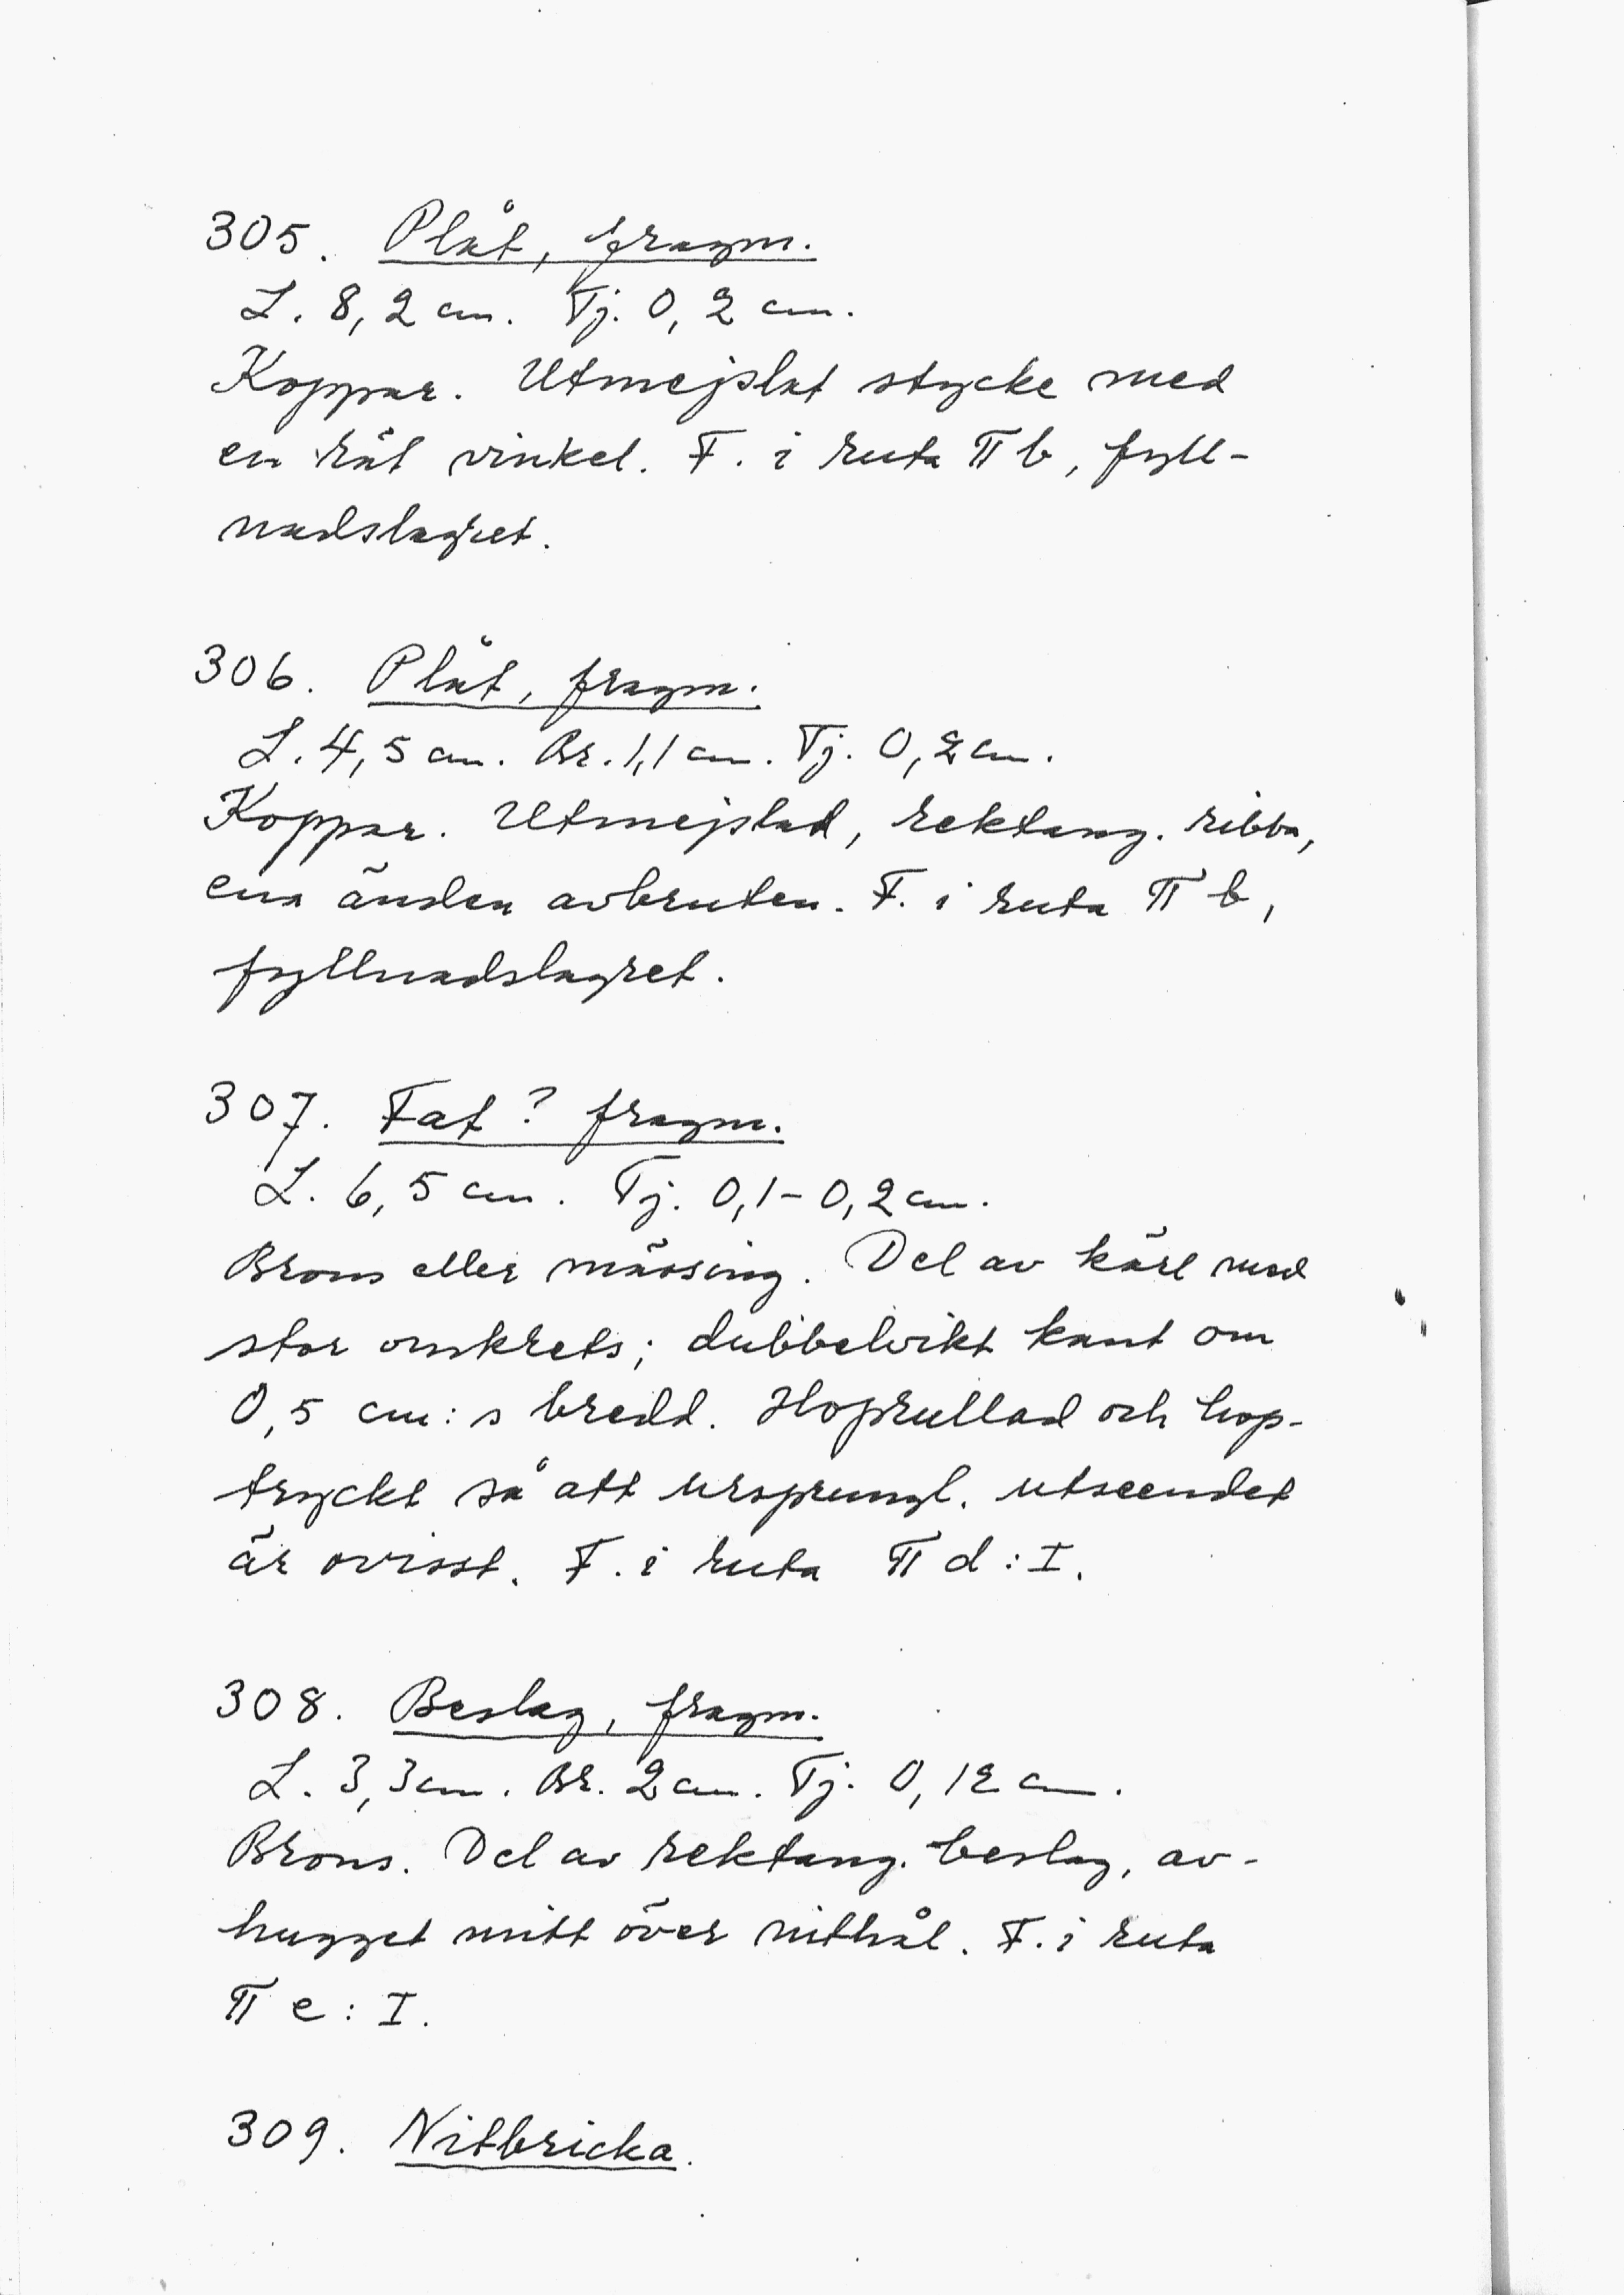 305. Plåt, fragm.
L. 8,2 cm. Tj. 0,2 cm.
Koppar. Utmejslat stycke med
en rät vinkel. F. i ruta II b, fyll-
nadslagret.
306. Plåt, fragm.
L. 4,5 cm. Br. 1,1 cm. Tj. 0,2 cm.
Koppar. Utmejslad, rektang. ribba,
ena änden avbruten. F. i ruta II b,
fyllnadslagret.
307. Fat? fragm.
L. 6,5 cm. Tj. 0,1-0,2 cm.
Brons eller mässing. Del av kärl med
stor omkrets; dubbelvikt kant om
0,5 cm:s bredd. Hoprullad och hop-
tryckt så att ursprungl. utseendet
är ovisst. F. i ruta II d:I.
308. Beslag, fragm.
L. 3,3 cm. Br. 2 cm. Tj. 0,12 cm.
Brons. Del av rektang. beslag, av-
hugget mitt över nithål. F. i ruta
II e: I.
309. Nitbricka.